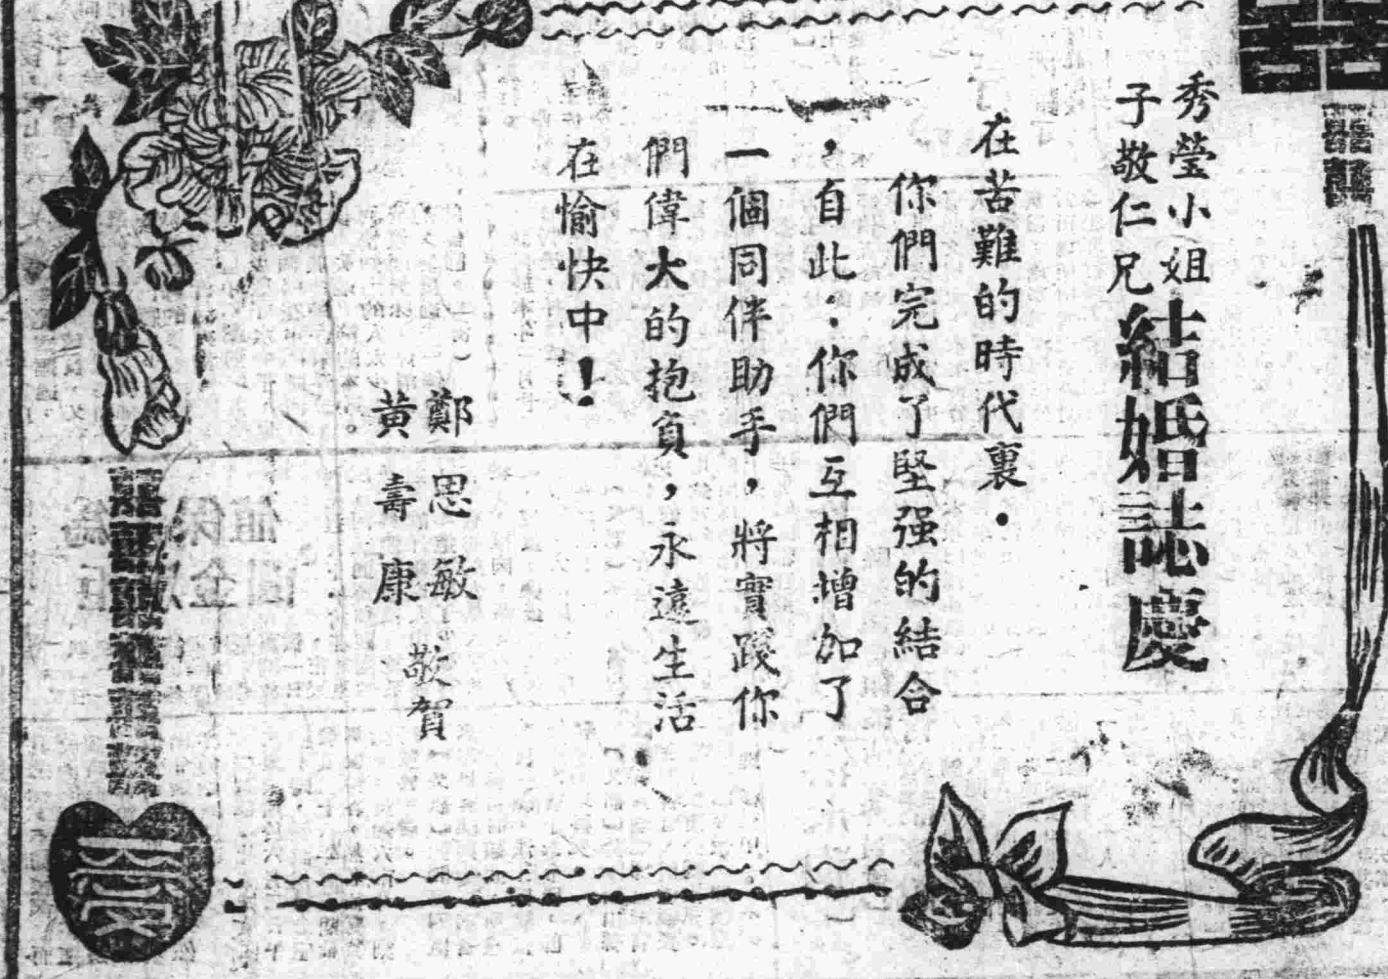 秀瑩小姐
子敬仁兄
結婚誌慶
在苦難的時代裏．
你們完成了堅强的結合
，自此：你們互相增加了
一個同伴助手，將實踐你
們偉大的抱負，永遠生活
在愉快中！
鄭思敏
黃壽康
敬賀